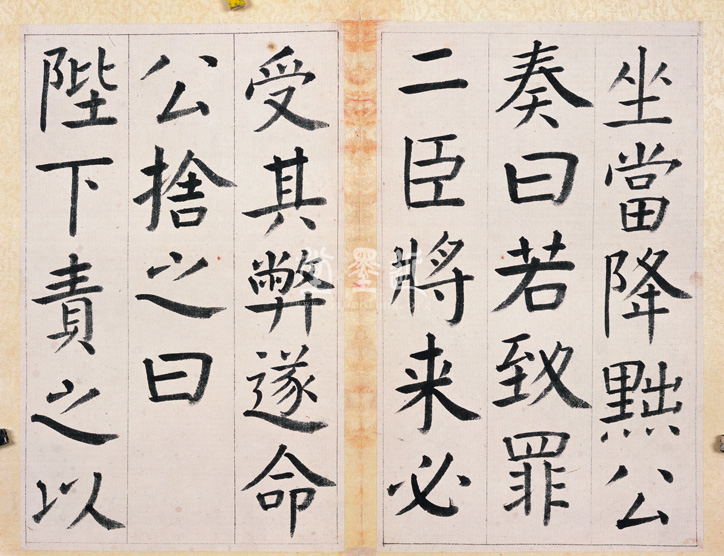 坐當降黜公
奏曰若致罪
二臣將来必
受其弊遂命
公捨之曰
陛下責之以